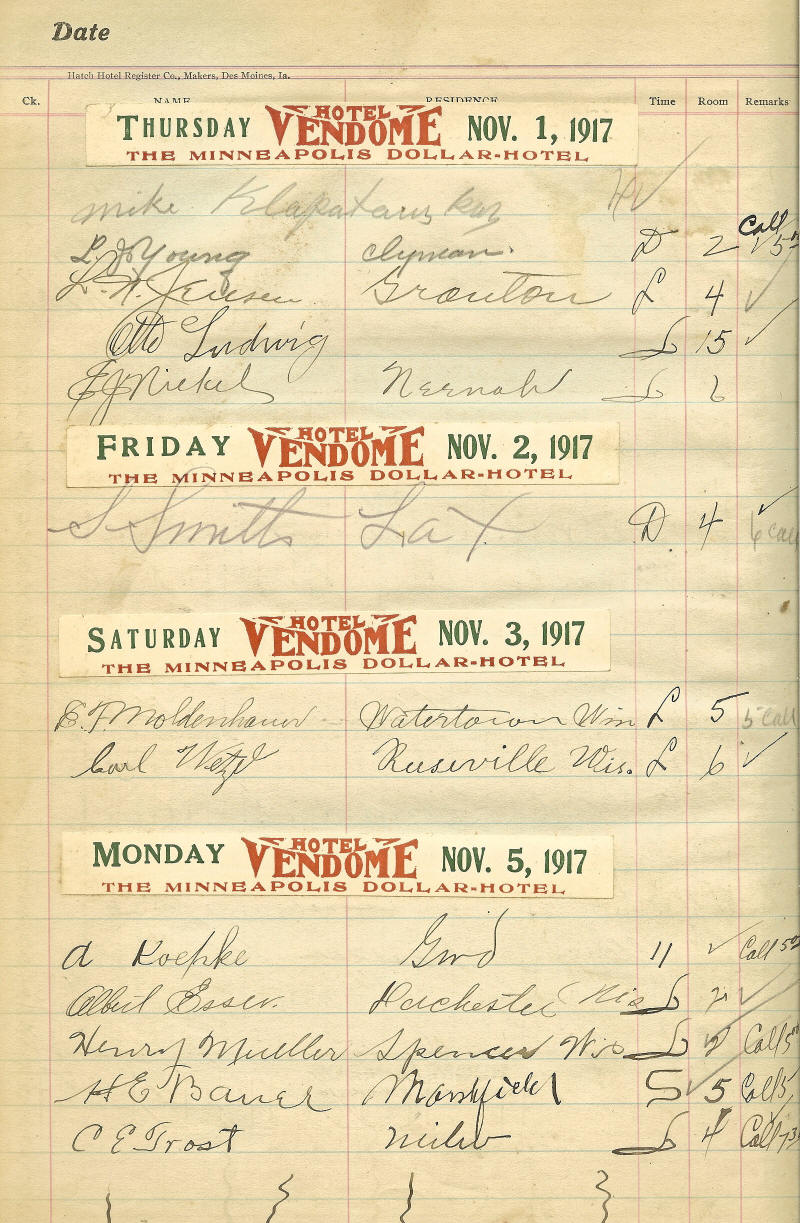 Date
Hatch Hotel Register Co., Makers, Des Moines, Ia.
Ck. NAME RESIDENCE Time Room Remarks
THURSDAY HOTEL VENDOME NOV. 1, 1917
THE MINNEAPOLIS DOLLAR-HOTEL
Mike
L. J. Young Clyman. D 2 Call
L. H. Jensen Granton L 4 ✓
Otto Ludwig 15 ✓
E J Nickel
FRIDAY HOTEL VENDOME NOV. 2, 1917
THE MINNEAPOLIS DOLLAR-HOTEL
S Smith La X D 4 6 Call
SATURDAY HOTEL VENDOME NOV. 3, 1917
THE MINNEAPOLIS DOLLAR-HOTEL
E. F. Moldenhauer Watertown L 5 5 Call
Carl Wetzel Ruseville Wis. L 6 ✓
MONDAY HOTEL VENDOME NOV. 5, 1917
THE MINNEAPOLIS DOLLAR-HOTEL
A Koepke 11 ✓ Call 5
Albert Esser. ✓
Henry Mueller Spencer Wis Call 5
H E Bauer Marshfield 5 5 Call 5
C E Trost 4 Call